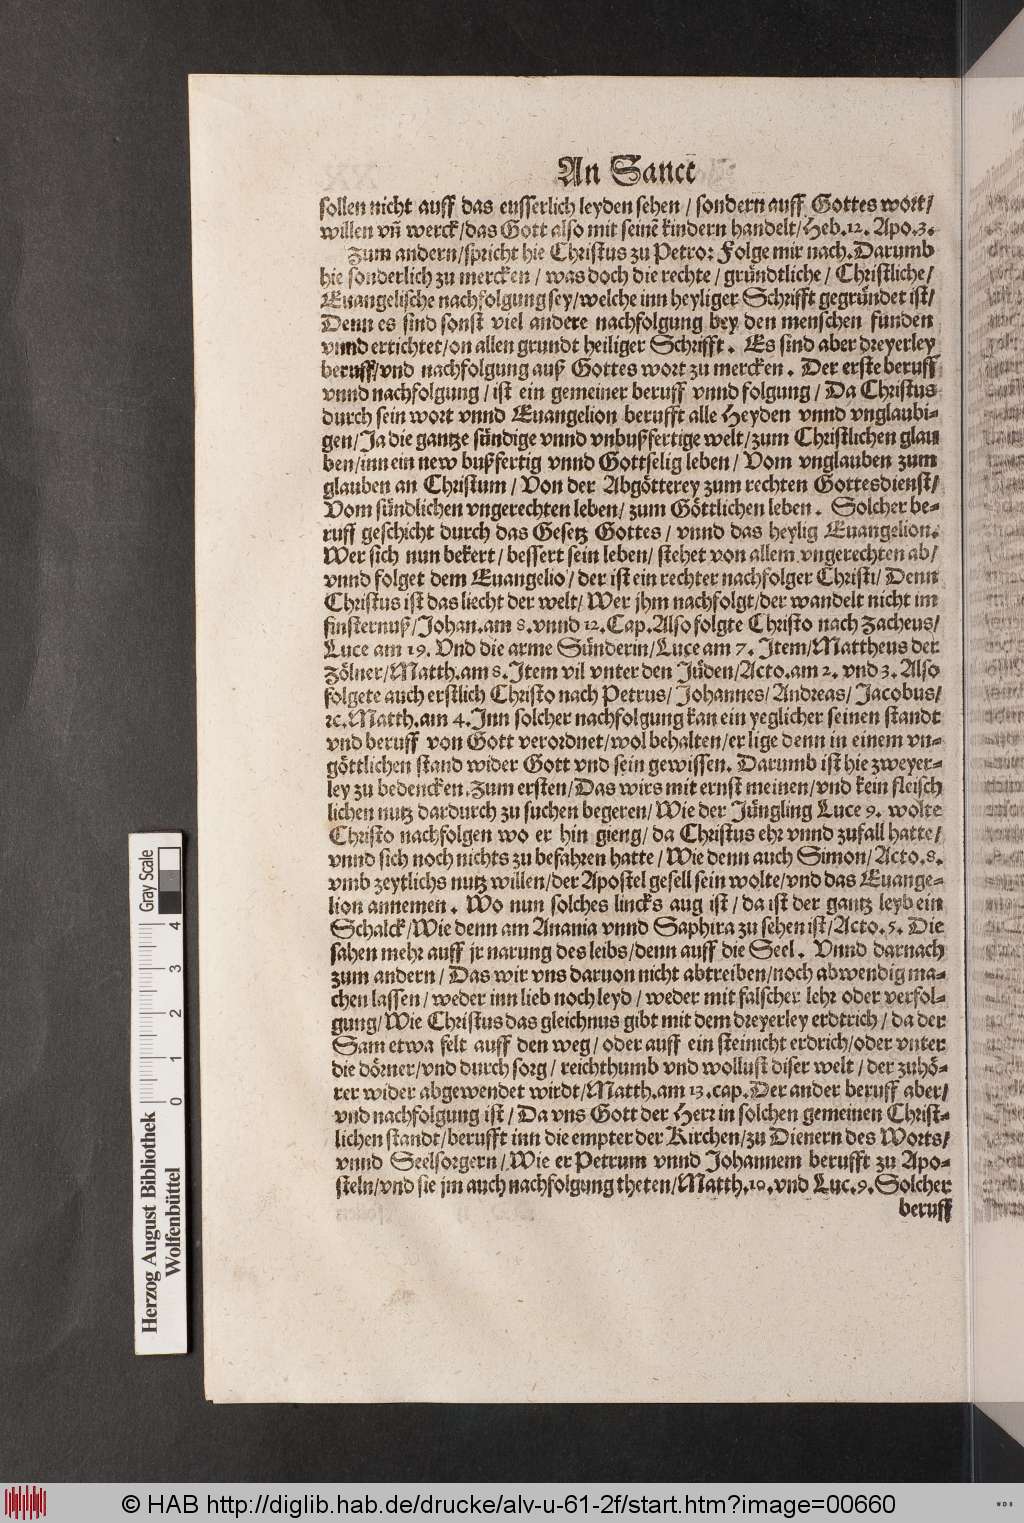 An Sanct
sollen nicht auff das eusserlich leyden sehen / sondern auff Gottes wort/
willen vñ werck/das Gott also mit seinẽ kindern handelt/Heb.12. Apo.3.
Zum andern/spricht hie Christus zu Petro: Folge mir nach. Darumb
hie sonderlich zu mercken / was doch die rechte / gründtliche / Christliche/
Euangelische nachfolgung sey/welche inn heyliger Schrifft gegründet ist/
Denn es sind sonst viel andere nachfolgung bey den menschen funden
vnnd ertichtet/on allen grundt heiliger Schrifft. Es sind aber dreyerley
beruff/vnd nachfolgung auß Gottes wort zu mercken. Der erste beruff
vnnd nachfolgung / ist ein gemeiner beruff vnnd folgung / Da Christus
durch sein wort vnnd Euangelion berufft alle Heyden vnnd vnglaubi-
gen/Ja die gantze sündige vnnd vnbußfertige welt/zum Christlichen glau
ben/inn ein new bußfertig vnnd Gottselig leben/ Vom vnglauben zum
glauben an Christum / Von der Abgötterey zum rechten Gottesdienst/
Vom sündlichen vngerechten leben/ zum Göttlichen leben. Solcher be-
ruff geschicht durch das Gesetz Gottes / vnnd das heylig Euangelion.
Wer sich nun bekert / bessert sein leben/ stehet von allem vngerechten ab/
vnnd folget dem Euangelio / der ist ein rechter nachfolger Christi/ Denn
Christus ist das liecht der welt/ Wer jhm nachfolgt/der wandelt nicht im
finsternuß/Johan.am 8.vnnd 12.Cap.Also folgte Christo nach Zacheus/
Luce am 19. Vnd die arme Sünderin/Luce am 7. Item/Mattheus der
Zölner/Matth.am 8.Item vil vnter den Jüden/Acto.am 2. vnd 3. Also
folgete auch erstlich Christo nach Petrus/ Johannes/ Andreas/ Jacobus/
ꝛc.Matth.am 4.Inn solcher nachfolgung kan ein yeglicher seinen standt
vnd beruff von Gott verordnet/wol behalten/er lige denn in einem vn-
göttlichen stand wider Gott vnd sein gewissen. Darumb ist hie zweyer-
ley zu bedencken.Zum ersten/Das wirs mit ernst meinen/vnd kein fleisch
lichen nutz dardurch zu suchen begeren/Wie der Jüngling Luce 9. wolte
Christo nachfolgen wo er hin gieng/da Christus ehr vnnd zufall hatte/
vnnd sich noch nichts zu befahren hatte / Wie denn auch Simon/ Acto.8.
vmb zeytlichs nutz willen/der Apostel gesell sein wolte/vnd das Euange-
lion annemen. Wo nun solches lincks aug ist/ da ist der gantz leyb ein
Schalck/Wie denn am Anania vnnd Saphira zu sehen ist/Acto.5. Die
sahen mehr auff jr narung des leibs/denn auff die Seel. Vnnd darnach
zum andern / Das wir vns daruon nicht abtreiben/noch abwendig ma-
chen lassen / weder inn lieb noch leyd / weder mit falscher lehr oder verfol-
gung/Wie Christus das gleichnus gibt mit dem dreyerley erdtrich / da der
Sam etwa felt auff den weg/oder auff ein steinicht erdrich/oder vnter
die dörner/vnd durch sorg/ reichthumb vnd wollust diser welt / der zuhö-
rer wider abgewendet wirdt/Matth.am 13.cap.Der ander beruff aber/
vnd nachfolgung ist / Da vns Gott der Herr in solchen gemeinen Christ-
lichen standt/berufft inn die empter der Kirchen/zu Dienern des Worts/
vnnd Seelsorgern / Wie er Petrum vnnd Johannem berufft zu Apo-
steln/vnd sie jm auch nachfolgung theten/Matth.19.vnd Luc.9.Solcher
beruff
Herzog August Bibliothek
Wolfenbüttel
0 1 2 3 4
Gray Scale
© HAB http://diglib.hab.de/drucke/alv-u-61-2f/start.htm?image=00660